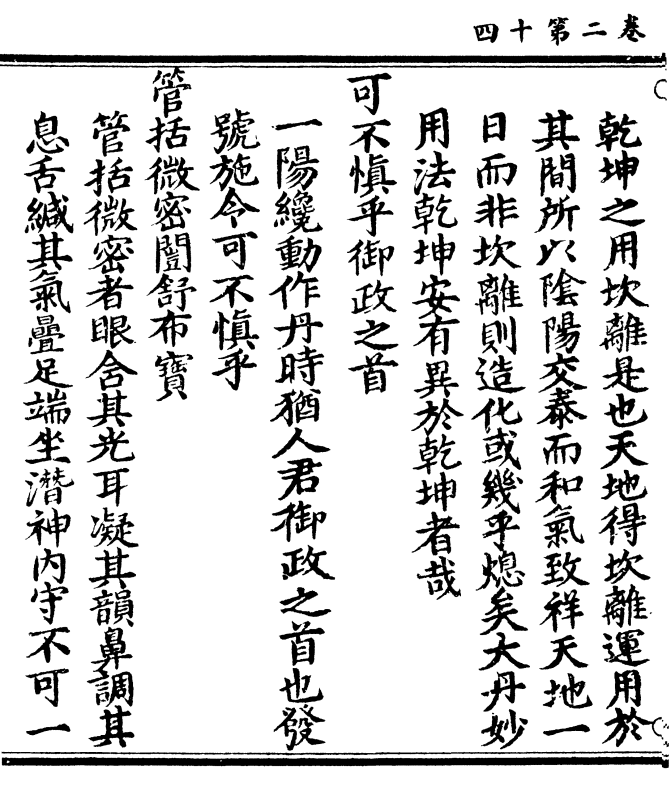 卷二第十四
乾坤之用坎離是也天地得坎離運用於
其間所以陰陽交泰而和氣致祥天地一
日而非坎離則造化或幾乎熄矣大丹妙
用法乾坤安有異於乾坤者哉
可不慎乎御政之首
一陽纔動作丹時猶人君御政之首也發
號施令可不慎乎
管括微密闓舒布寶
管括微密者眼含其光耳凝其韻鼻調其
息舌緘其氣疊足端坐潛神內守不可一